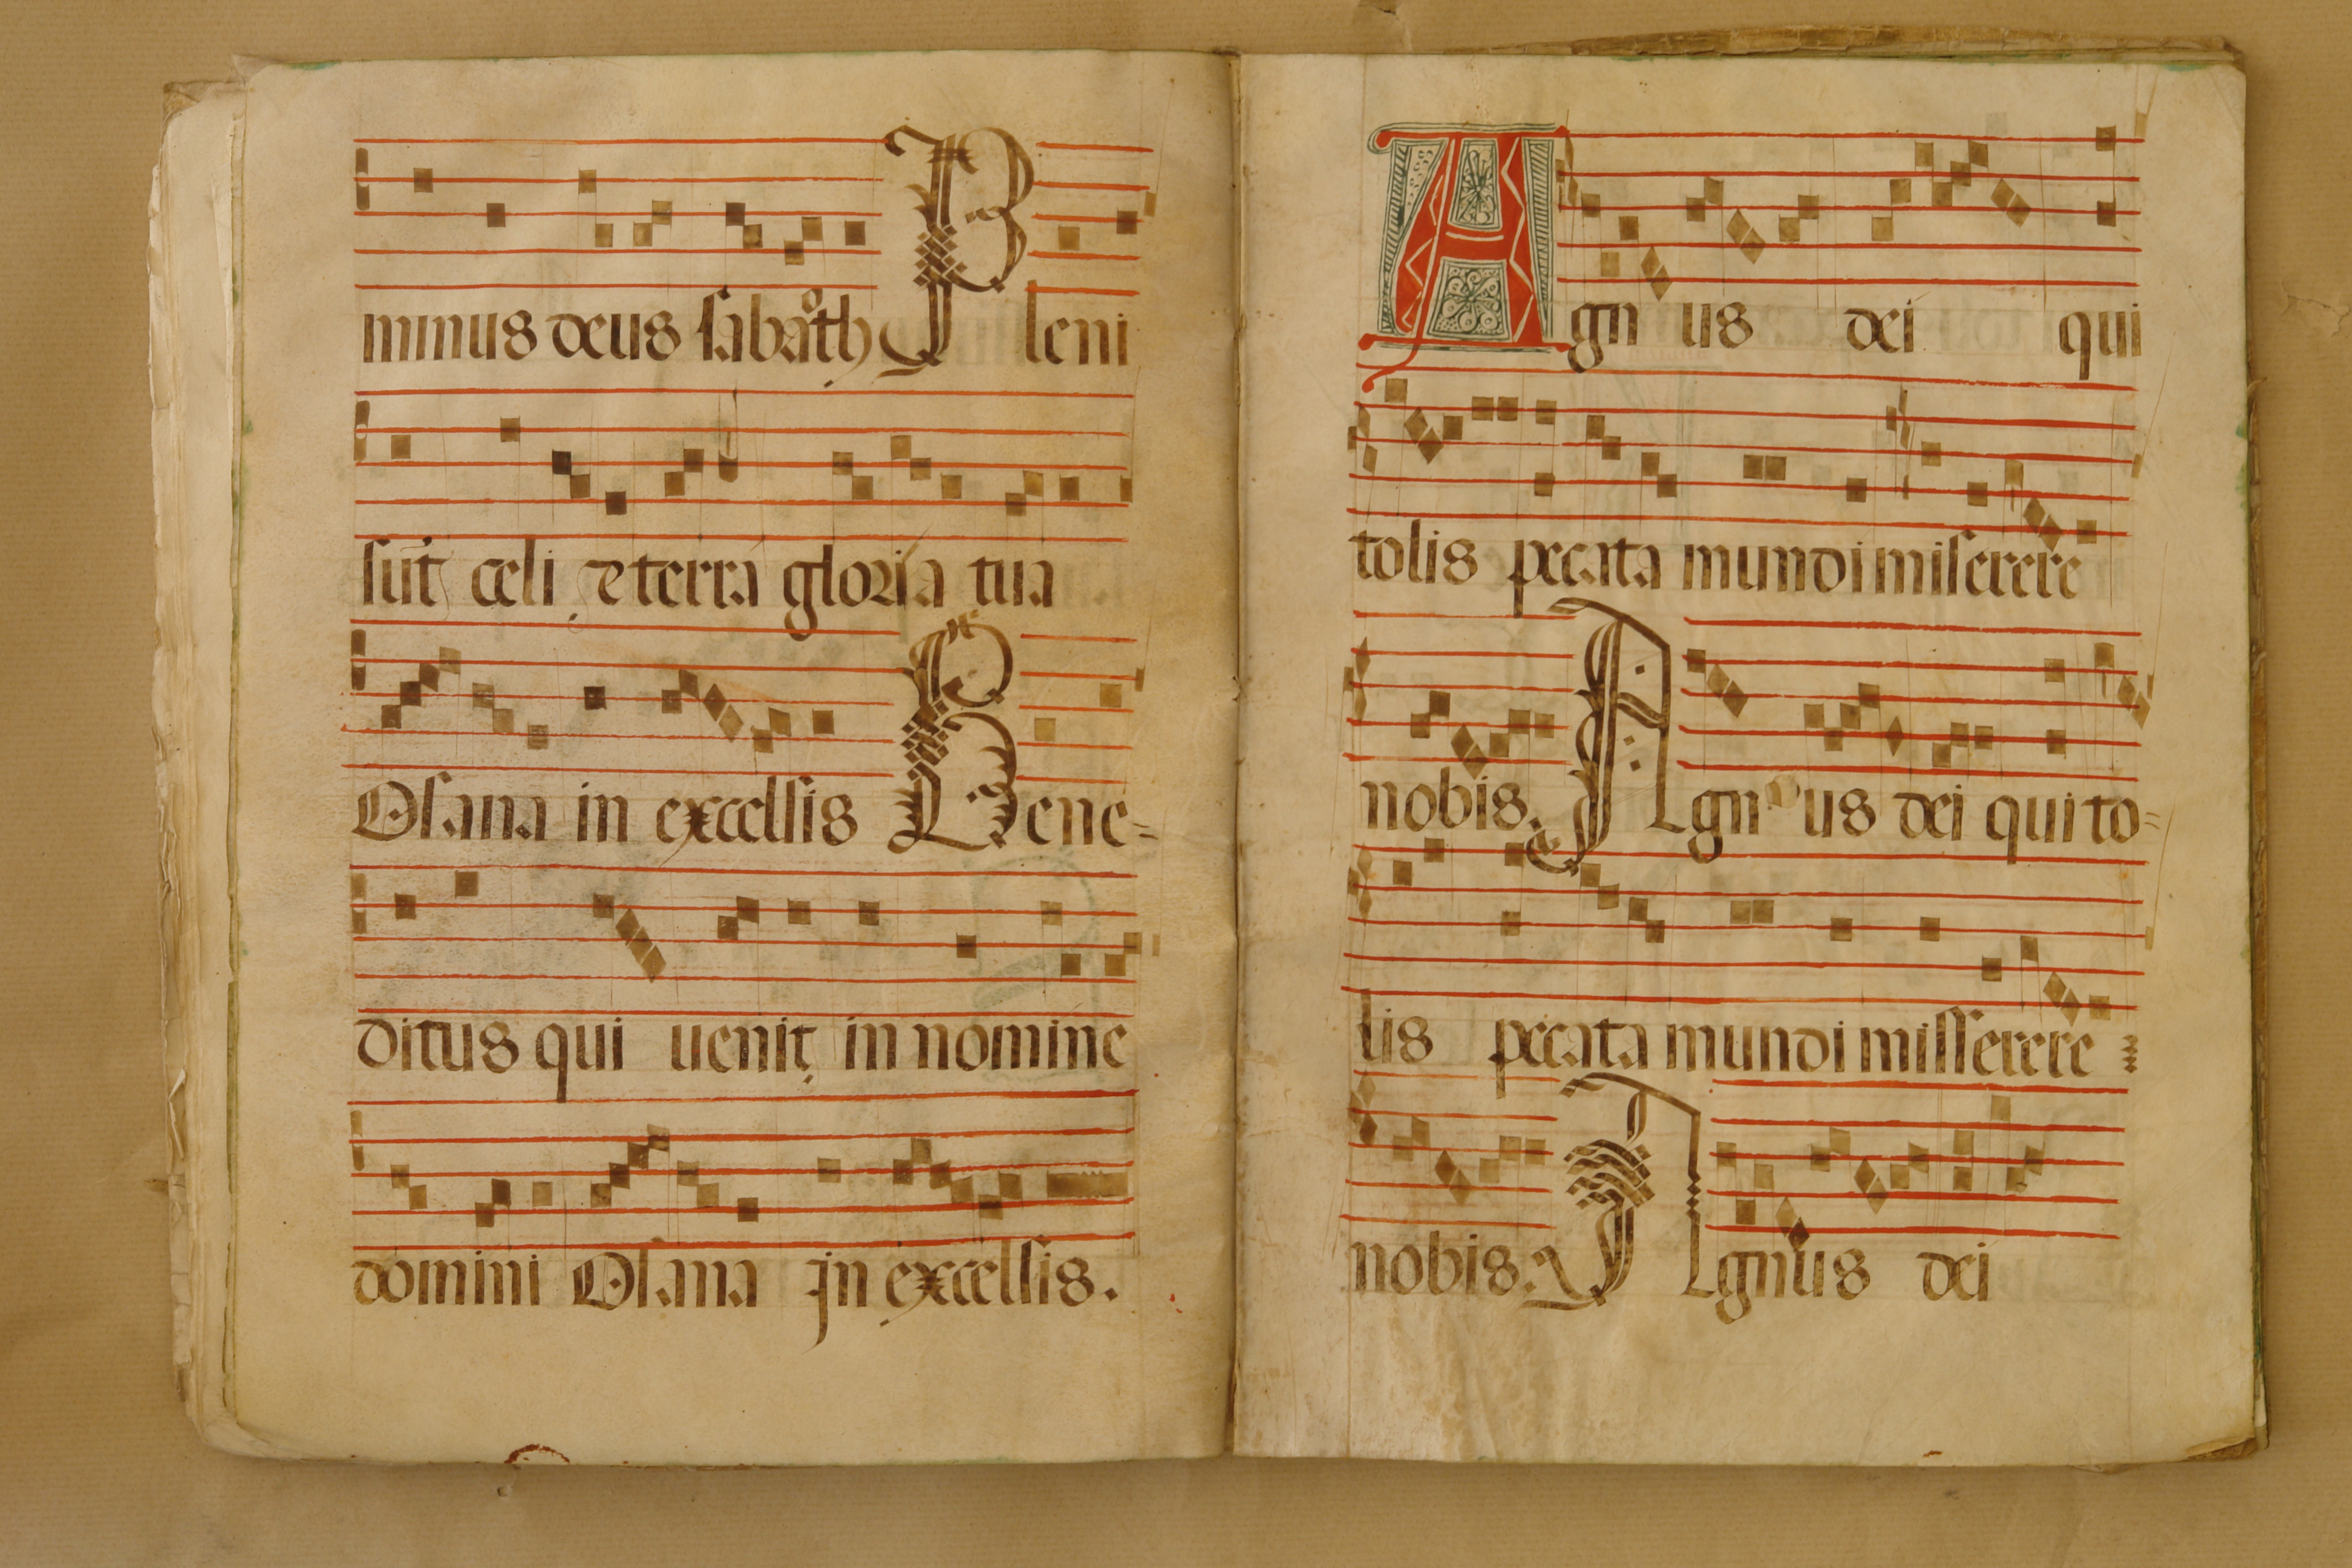 minus deus sabaoth Pleni
sūt celi et terra gloria tua
Osana in excelsis Bene-
ditus qui uenit in nomine
domini Osana in excelsis.
Agnus dei qui
tolis pecata mundi miserere
nobis. Agnus dei qui to=
lis pecata mundi misserere
nobis: Agnus dei